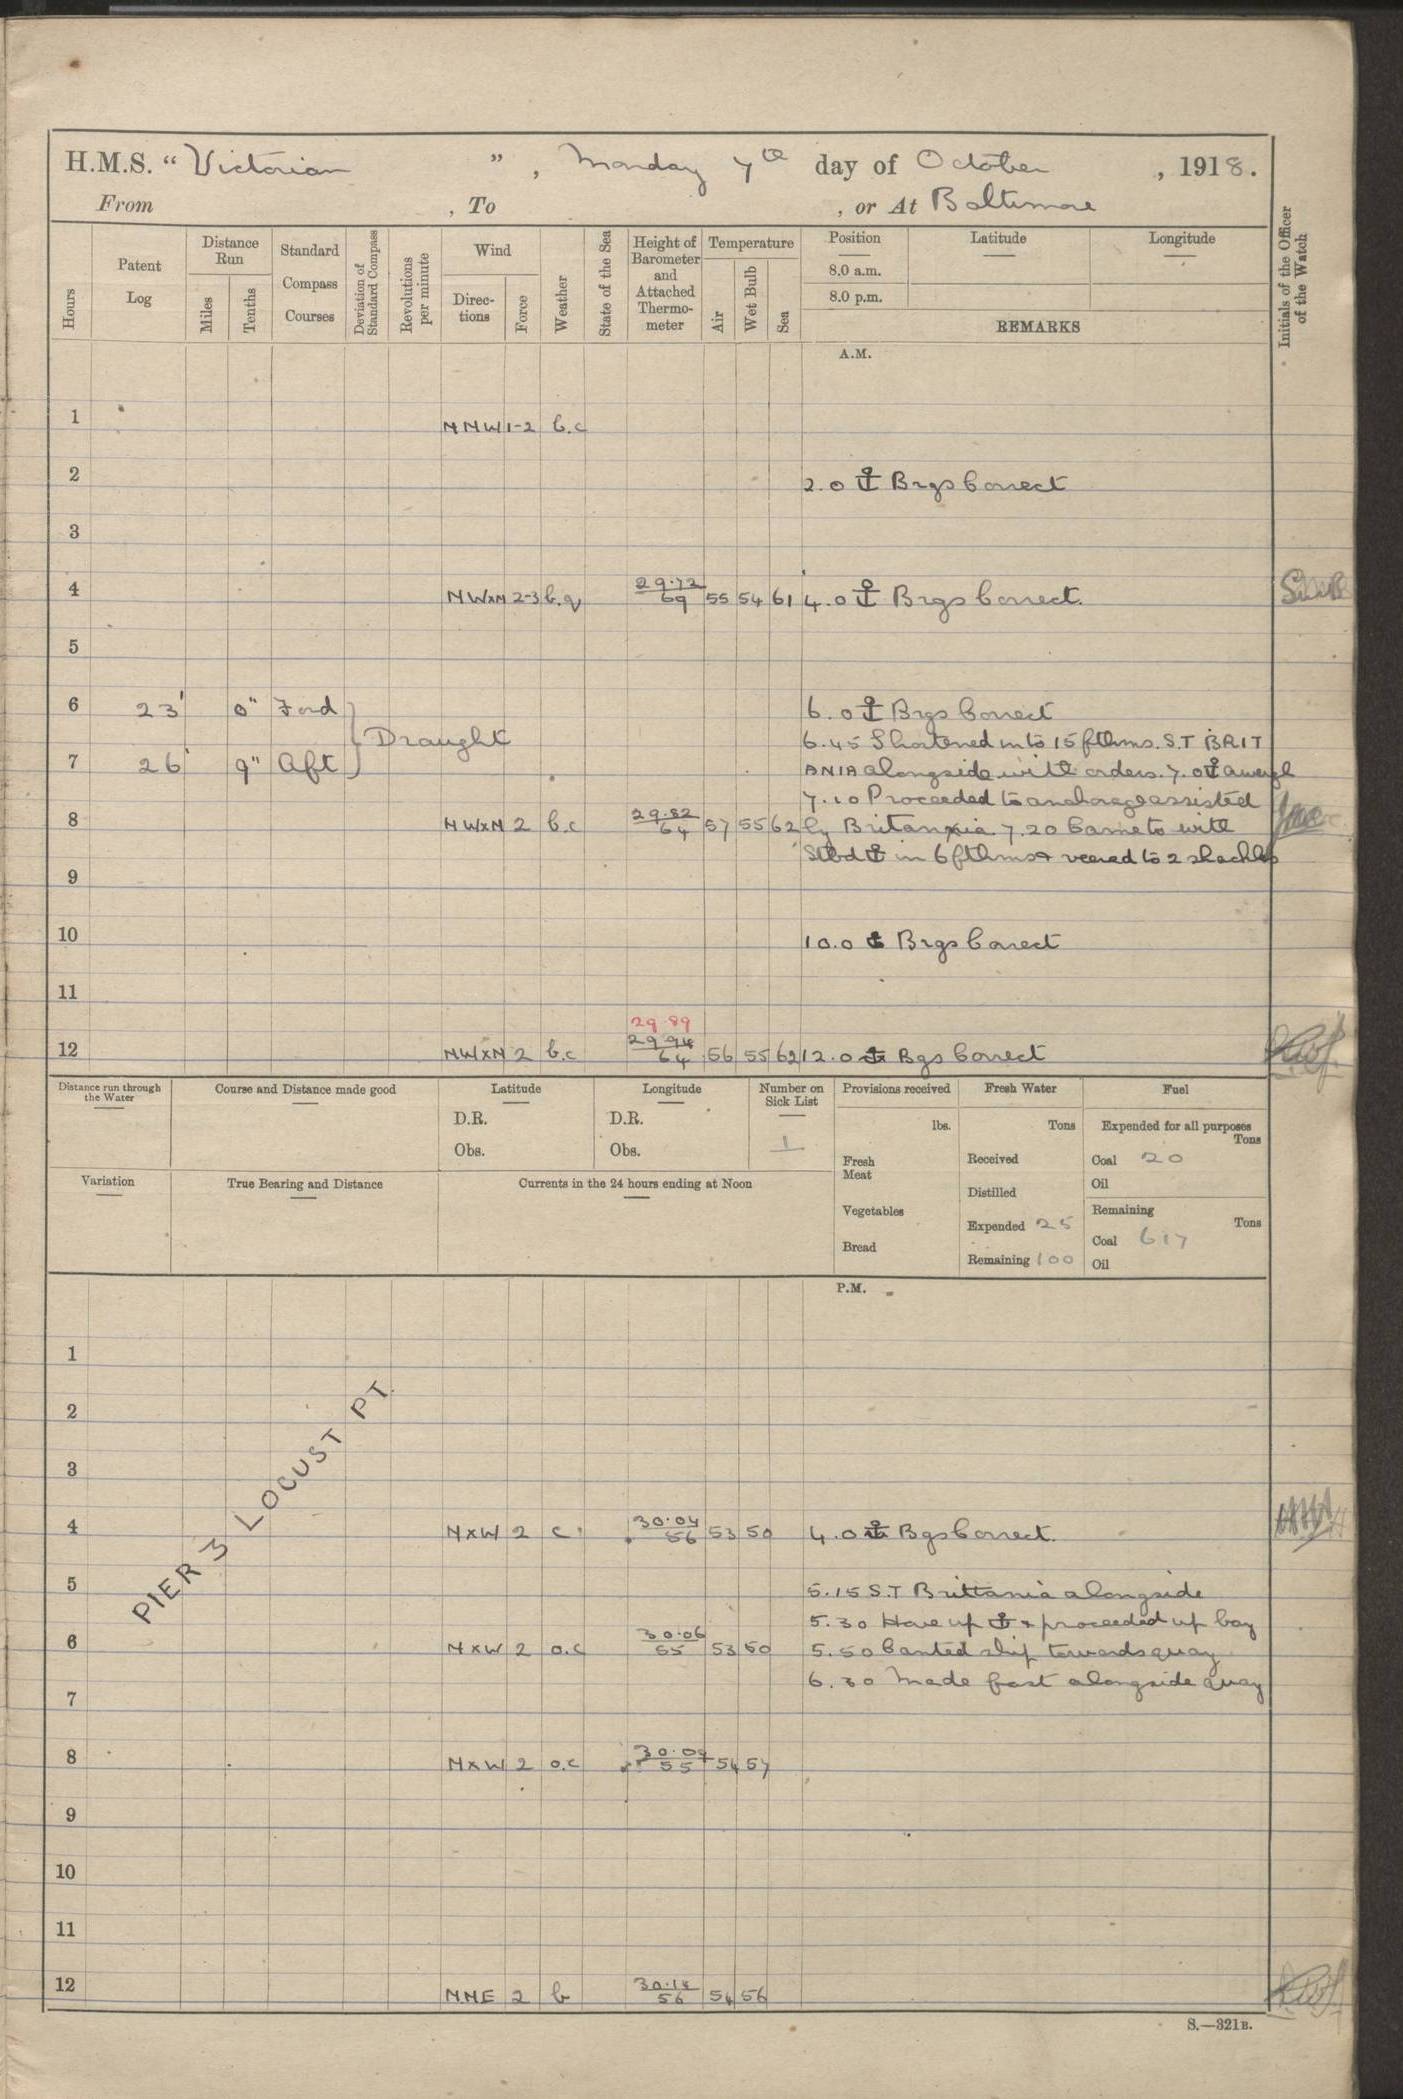 H.M.S. “Victorian ”, Monday 7th day of October, 1918.
From , To , or At Baltimore
Hours
Patent Log
Distance Run
Miles
Tenths
Standard Compass Courses
Deviation of Standard Compass
Revolutions per minute
Wind
Directions
Force
Weather
State of the Sea
Height of Barometer and Attached Thermometer
Temperature
Air
Wet Bulb
Sea
Position
8.0 a.m.
8.0 p.m.
Latitude
Longitude
REMARKS
Initials of the Officer of the Watch
A.M.
1 NNW 1-2 b.c
2 2.0 ⚓ Brgs Correct
3
4 NWxN 2-3 b.q 29.72 69 55 54 61 4.0 ⚓ Brgs Correct.
5
6 23' 0" Ford 6.0 ⚓ Brgs Correct
Draught 6.45 Shortened in to 15 fthms. S.T BRIT
7 26' 9" Aft ANIA alongside with orders. 7.0 ⚓ aweigh
7.10 Proceeded to anchorage assisted
8 NWxN 2 b.c 29.82 64 57 55 62 by Britannia 7.20 Came to with
Stbd ⚓ in 6 fthms & veered to 2 shackles
9
10 10.0 ⚓ Brgs Correct
11
29.89
12 NWxN 2 b.c 29.94 64 56 55 62 12.0 ⚓ Bgs Correct
Distance run through the Water
Course and Distance made good
Latitude
D.R.
Obs.
Longitude
D.R.
Obs.
Number on Sick List
1
Provisions received
lbs.
Fresh Meat
Vegetables
Bread
Fresh Water
Tons
Received
Distilled
Expended 25
Remaining 100
Fuel
Expended for all purposes
Tons
Coal 20
Oil
Remaining
Tons
Coal 617
Oil
Variation
True Bearing and Distance
Currents in the 24 hours ending at Noon
P.M.
1
2
3
PIER 3 LOCUST PT.
4 NxW 2 c 30.04 56 53 50 4.0 ⚓ Bgs Correct.
5 5.15 S.T Brittania alongside
5.30 Hove up ⚓ & proceeded up bay
6 NxW 2 o.c 30.06 55 53 50 5.50 Canted ship towards quay
6.30 Made fast alongside quay
7
8 NxW 2 o.c 30.09 55 54 57
9
10
11
12 NNE 2 b 30.12 56 54 56
S.—321B.